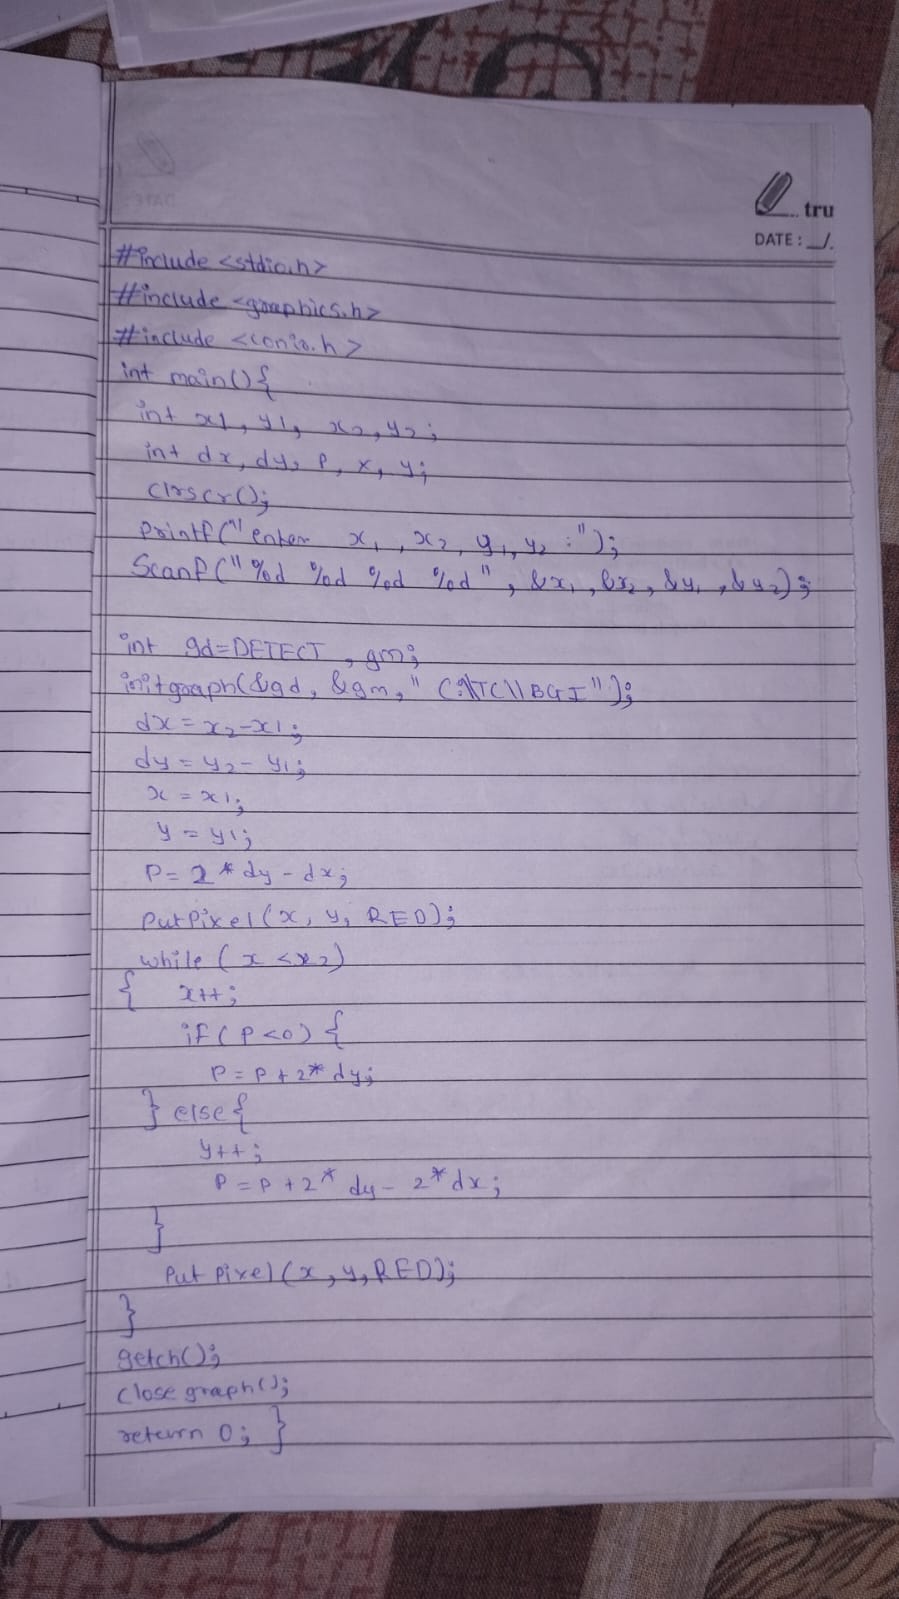 tru
DATE: __/.
#include <stdio.h>
#include <graphics.h>
#include <conio.h>
int main(){
int x1, y1, x2, y2;
int dx, dy, P, x, y;
clrscr();
printf("enter x1, x2, y1, y2 :");
Scanf("%d %d %d %d", &x1, &x2, &y1, &y2);
int gd=DETECT, gm;
initgraph(&gd, &gm, "C:\\TC\\BGI");
dx = x2-x1;
dy = y2-y1;
x = x1;
y = y1;
P= 2*dy-dx;
putpixel(x, y, RED);
while (x<x2)
{ x++;
if (P<0) {
P=P+2*dy;
} else {
y++;
P=P+2*dy-2*dx;
}
Putpixel(x, y, RED);
}
getch();
closegraph();
return 0; }